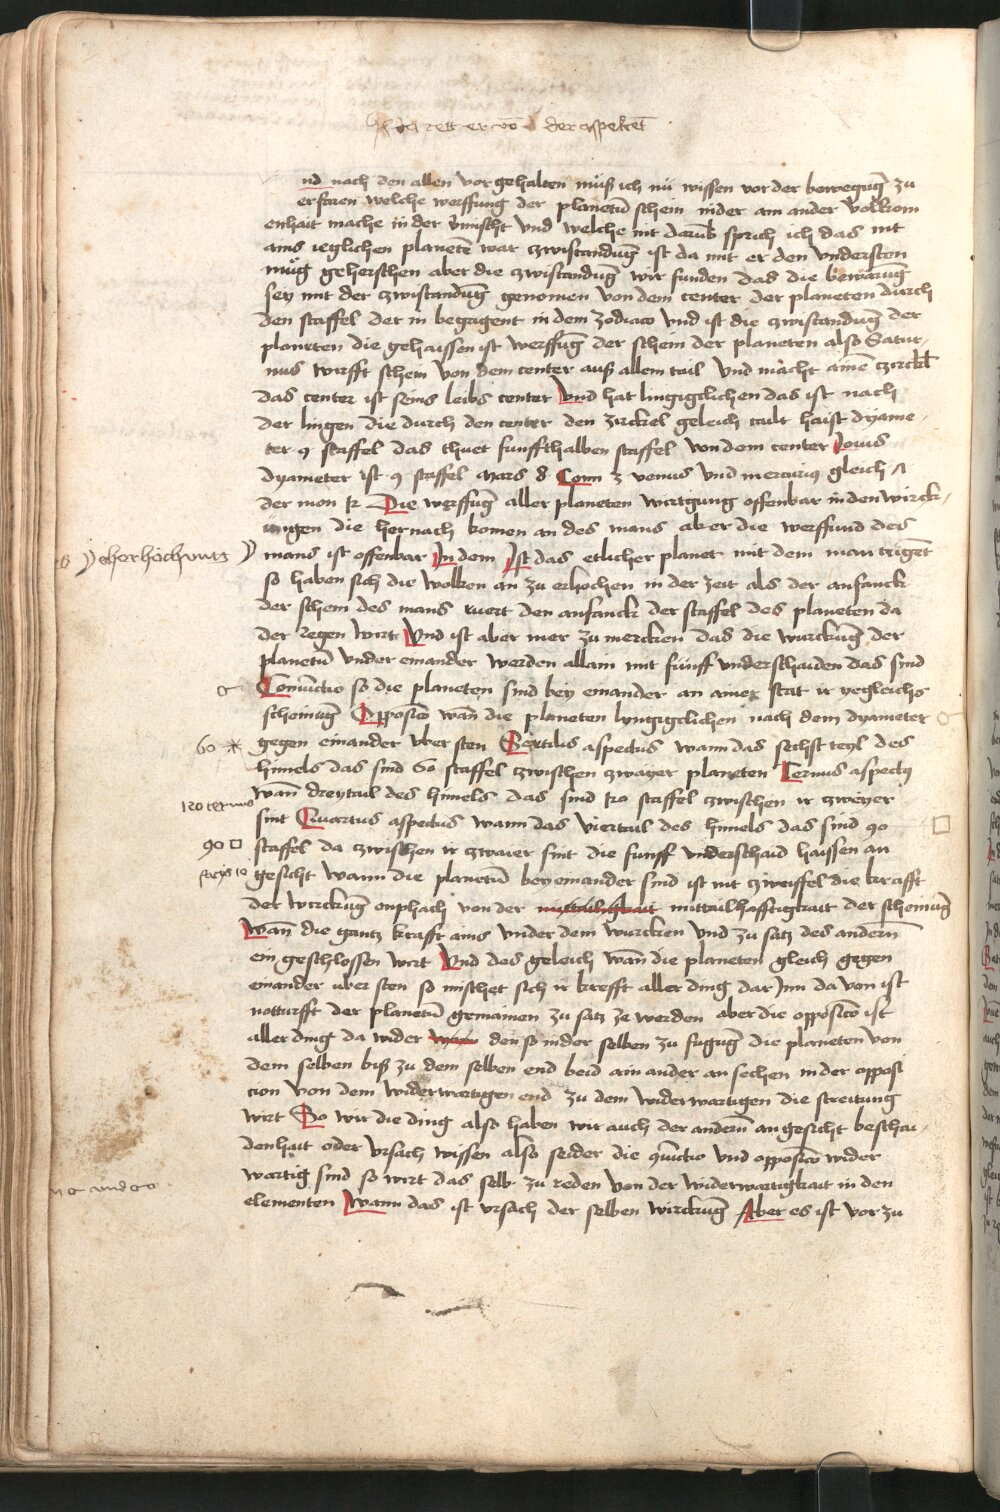 da rett er võ der aspeket
nd nach den allen vor gehalten müß ich nü wissen vor der bewegũg zu
erfaren welche werffung der planetũ schein in der am ander volkom
enhait mache in der vinischt vnd welche nit darũb sprich ich das nit
ains ieglichen planetẽ war zwistandũg ist da mit er den vndersten
müg geherschen aber die zwistandũg wir funden das die bewärũg
sey mit der zwistandũg genomen von dem center der planeten durch
den staffel der in begagent in dem zodiaco vnd ist die zwistandũg der
planeten die gehaissen ist werffũg der schein der planeten also Satur
nus wirfft schein von dem center auß allem tail vnd macht ainẽ czirckel
das center ist seins leibs center Vnd hat lingigclichen das ist nach
der lingen die durch den center den zirckel geleich tailt haist dyame
ter 9 staffel das thuet funffthalben staffel von dem center Jouis
dyameter ist 9 staffel mars 8 Sonn 3 venus vnd mercurius gleich 7
der mon 12 Die werffũg aller planeten wirckung offenbar in den wirck
ungen die hernach komen an des mans aber die werffund des
mans ist offenbar In dem Ist das etlicher planet mit dem man trigẽt
so haben sich die wolken an zu erhochen in der zeit als der anfanck
der schein des mans ruert den anfanck der staffel des planeten da
der regen wirt Vnd ist aber mer zu mercken das die wurckũg der
planetũ vnder einander werden allain mit fünff vnderschaiden das sind
Coniũctio so die planeten sind bey einander an ainer stat ir yegleichs
scheinũg Opposicio wañ die planeten lyngigclichen nach dem dyameter
gegen einander vber sten Sextilis aspectus wann das sechst teyl des
himels das sind 60 staffel zwischen zwayer planeten Ternus aspectus
60 *
wañ dreytail des himels das sind 120 staffel zwischen ir zweyer
120 ternus
sint Quartus aspectus wann das viertail des himels das sind 90
90 □
staffel da zwischen ir zwaier sint die funff vnderschaid haissen an
gesicht wann die planetũ bey einander sind ist nit zweiffel die krafft
der wirckũg enphach von der mittailhafftigkait der scheinũg
Wañ die gantz krafft ains vnder dem wurcken vnd zu satz des andern
ein geschlossen wirt Vnd des geleich wañ die planeten gleich gegen
einander vber sten so mischet sich ir krefft aller ding dar Inn da von ist
notturfft der planetũ gemainen zu satz ze werden aber die opposicio ist
aller ding da wider den so in der selben zu fugũg die planeten von
dem selben biß zu dem selben end beid ain ander an sechen in der opposi
cion von dem widerwertigen end zu dem widerwartigen die streitung
wirt So wir die ding also haben wir auch der andern angesicht beschai
denhait oder vrsach wissen also seider die coniũctio vnd opposicio wider
wartig sind so wirt das selb zu reden von der widerwartigkait in den
elementen Wann das ist vrsach der selben wirckũg Aber es ist vor zu